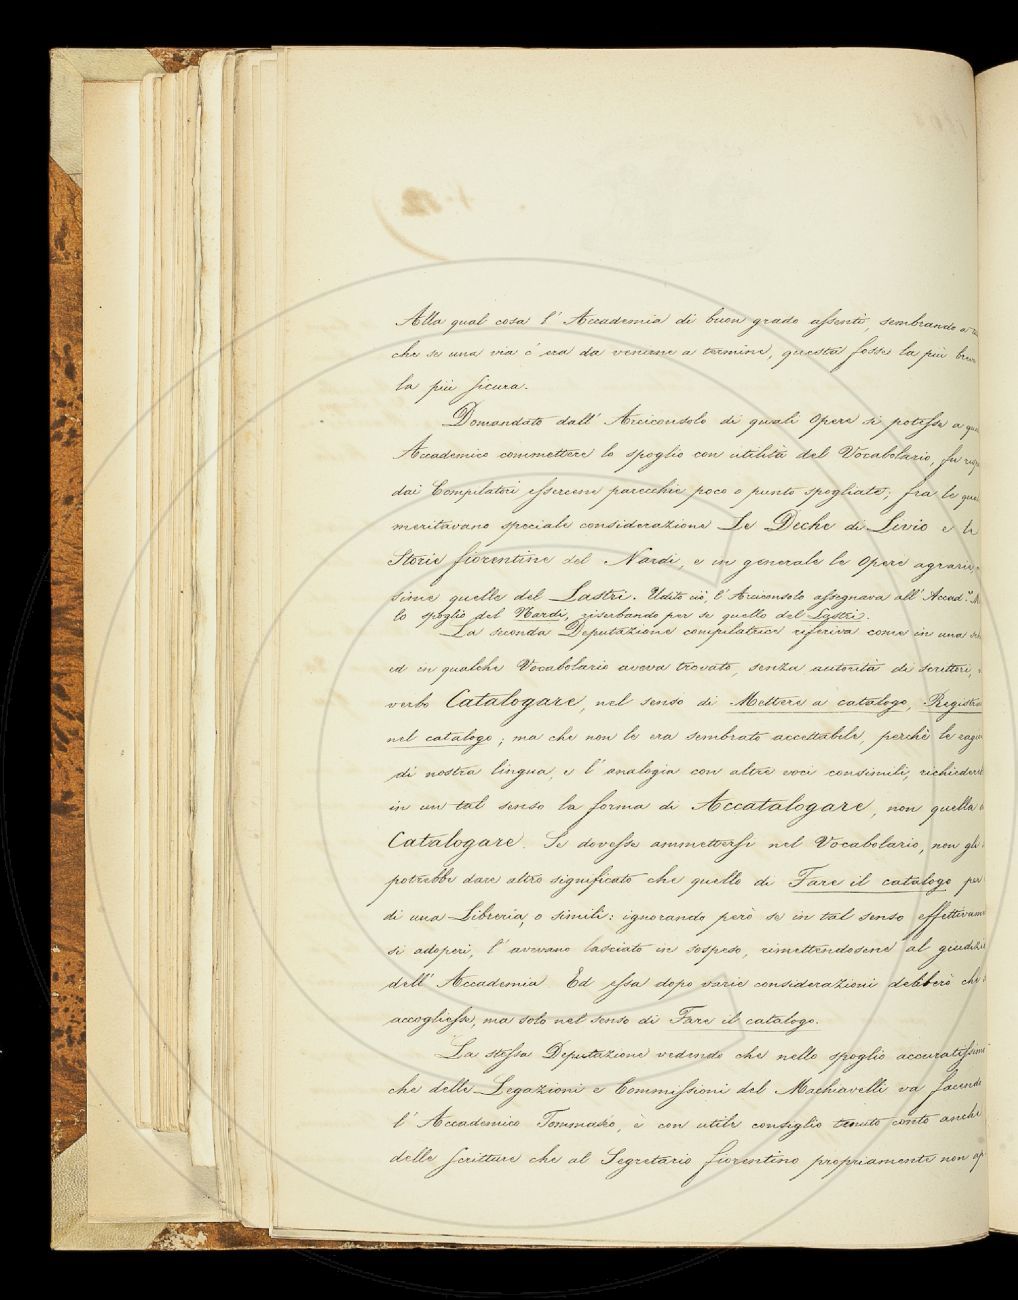 Alla qual cosa l' Accademia di buon grado assentì, sembrando a
che se una via c' era da venirne a termine, questa fosse la più
la più sicura.
Domandato dall' Arciconsolo di quali Opere si potesse a
Accademico commettere lo spoglio con utilità del Vocabolario, fu
dai Compilatori essercene parecchie poco o punto spogliate; fra le
meritavano speciale considerazione Le Deche di Livio e le
Storie fiorentine del Nardi, e in generale le Opere agrarie,
sime quelle del Lastri. Udito ciò, l' Arciconsolo assegnava all' Accad.º
lo spoglio del Nardi, riserbando per se quello del Lastri.
La seconda Deputazione compilatrice riferiva come in una
ed in qualche Vocabolario aveva trovato, senza autorità di scrittori,
verbo Catalogare, nel senso di Mettere a catalogo,
nel catalogo; ma che non le era sembrato accettabile, perchè le
di nostra lingua, e l' analogia con altre voci consimili,
in un tal senso la forma di Accatalogare, non quella
Catalogare. Se dovesse ammettersi nel Vocabolario, non gli
potrebbe dare altro significato che quello di Fare il catalogo
di una Libreria, o simili: ignorando però se in tal senso
si adoperi, l' avevano lasciato in sospeso, rimettendosene al
dell' Accademia. Ed essa dopo varie considerazioni deliberò che
accogliesse, ma solo nel senso di Fare il catalogo.
La stessa Deputazione vedendo che nello spoglio
che delle Legazioni e Commissioni del Machiavelli va facendo
l' Accademico Tommaséo, è con utile consiglio tenuto conto anche
delle scritture che al Segretario fiorentino propriamente non